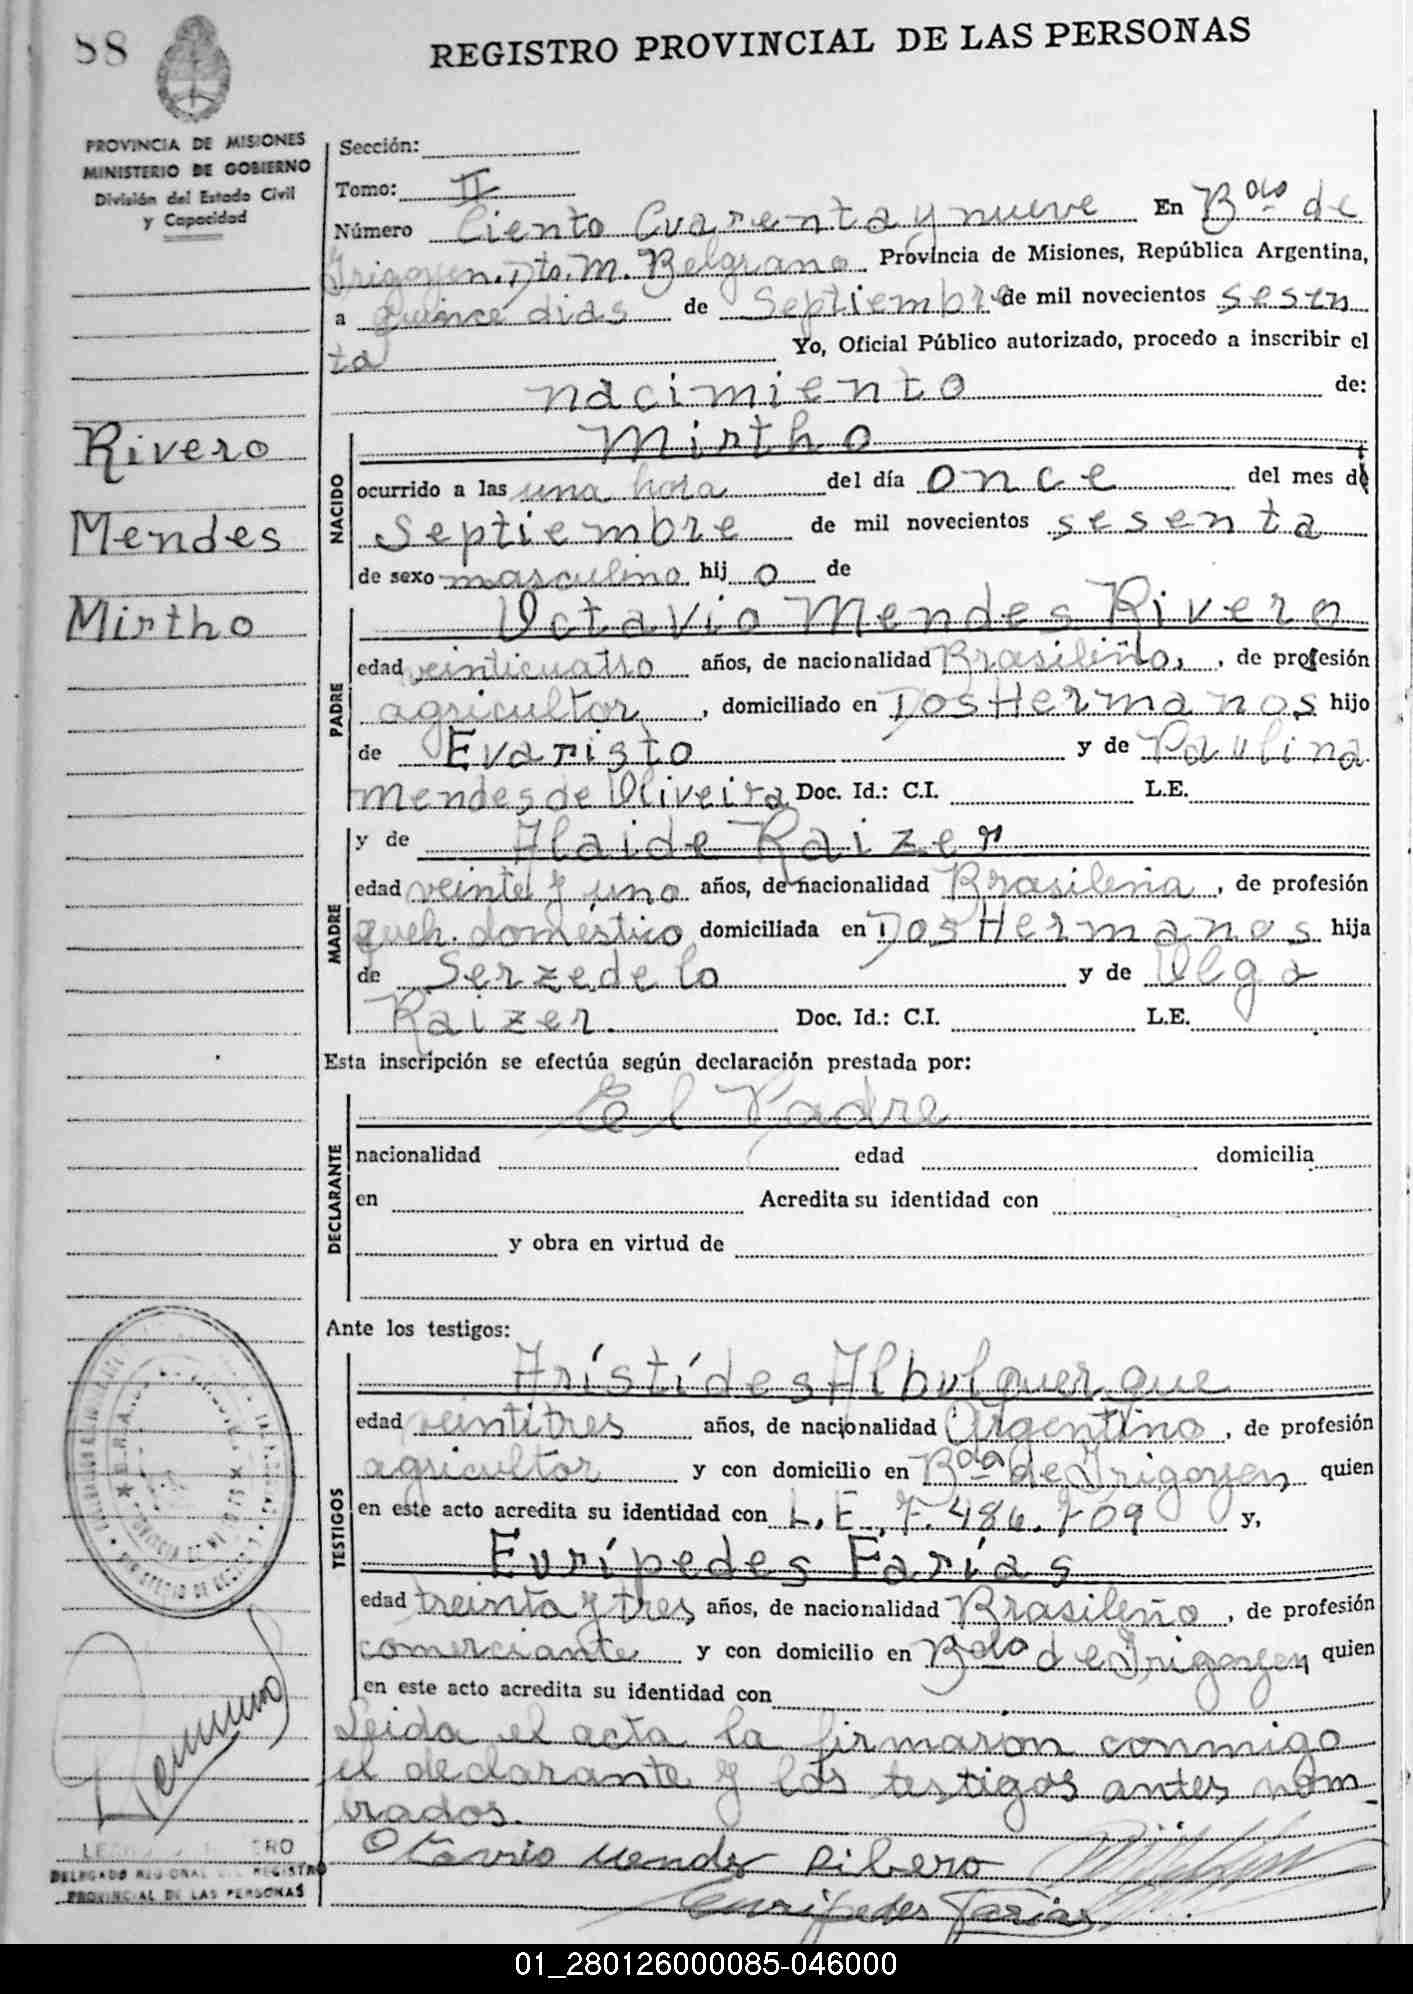 88
REGISTRO PROVINCIAL DE LAS PERSONAS
PROVINCIA DE MISIONES
MINISTERIO DE GOBIERNO
División del Estado Civil
y Capacidad
Rivero
Mendes
Mirtho
Sección:
Tomo: II
Número Ciento Cuarenta y nueve En Bdo de
Irigoyen. Dto. M. Belgrano Provincia de Misiones, República Argentina,
a quince dias de Septiembre de mil novecientos sesen
ta Yo, Oficial Público autorizado, procedo a inscribir el
nacimiento de:
NACIDO
Mirtho
ocurrido a las una hora del día once del mes de
Septiembre de mil novecientos sesenta
de sexo masculino hij o de
PADRE
Octavio Mendes Rivero
edad veinticuatro años, de nacionalidad Brasileño, , de profesión
agricultor , domiciliado en Dos Hermanos hijo
de Evaristo y de Paulina
Mendes de Oliveira Doc. Id.: C.I. L.E.
MADRE
y de Alaide Raizer
edad veinte y uno años, de nacionalidad Brasileña , de profesión
queh. doméstico domiciliada en Dos Hermanos hija
de Serzedelo y de Olga
Raizer. Doc. Id.: C.I. L.E.
Esta inscripción se efectúa según declaración prestada por:
DECLARANTE
El Padre
nacionalidad edad domicilia
en Acredita su identidad con
y obra en virtud de
Ante los testigos:
TESTIGOS
Arístídes Albulquerque
edad veintitres años, de nacionalidad Argentino , de profesión
agricultor y con domicilio en Bdo de Irigoyen, quien
en este acto acredita su identidad con L.E. 7.486.709 y,
Eurípedes Farías
edad treinta y tres años, de nacionalidad Brasileño , de profesión
comerciante y con domicilio en Bdo de Irigoyen quien
en este acto acredita su identidad con
Leida el acta la firmaron conmigo
el declarante y los testigos antes nom
brados.
Otavio Mendes Ribero
Euripedes Farias
DELEGADO REGIONAL DEL REGISTRO
PROVINCIAL DE LAS PERSONAS
01_280126000085-046000